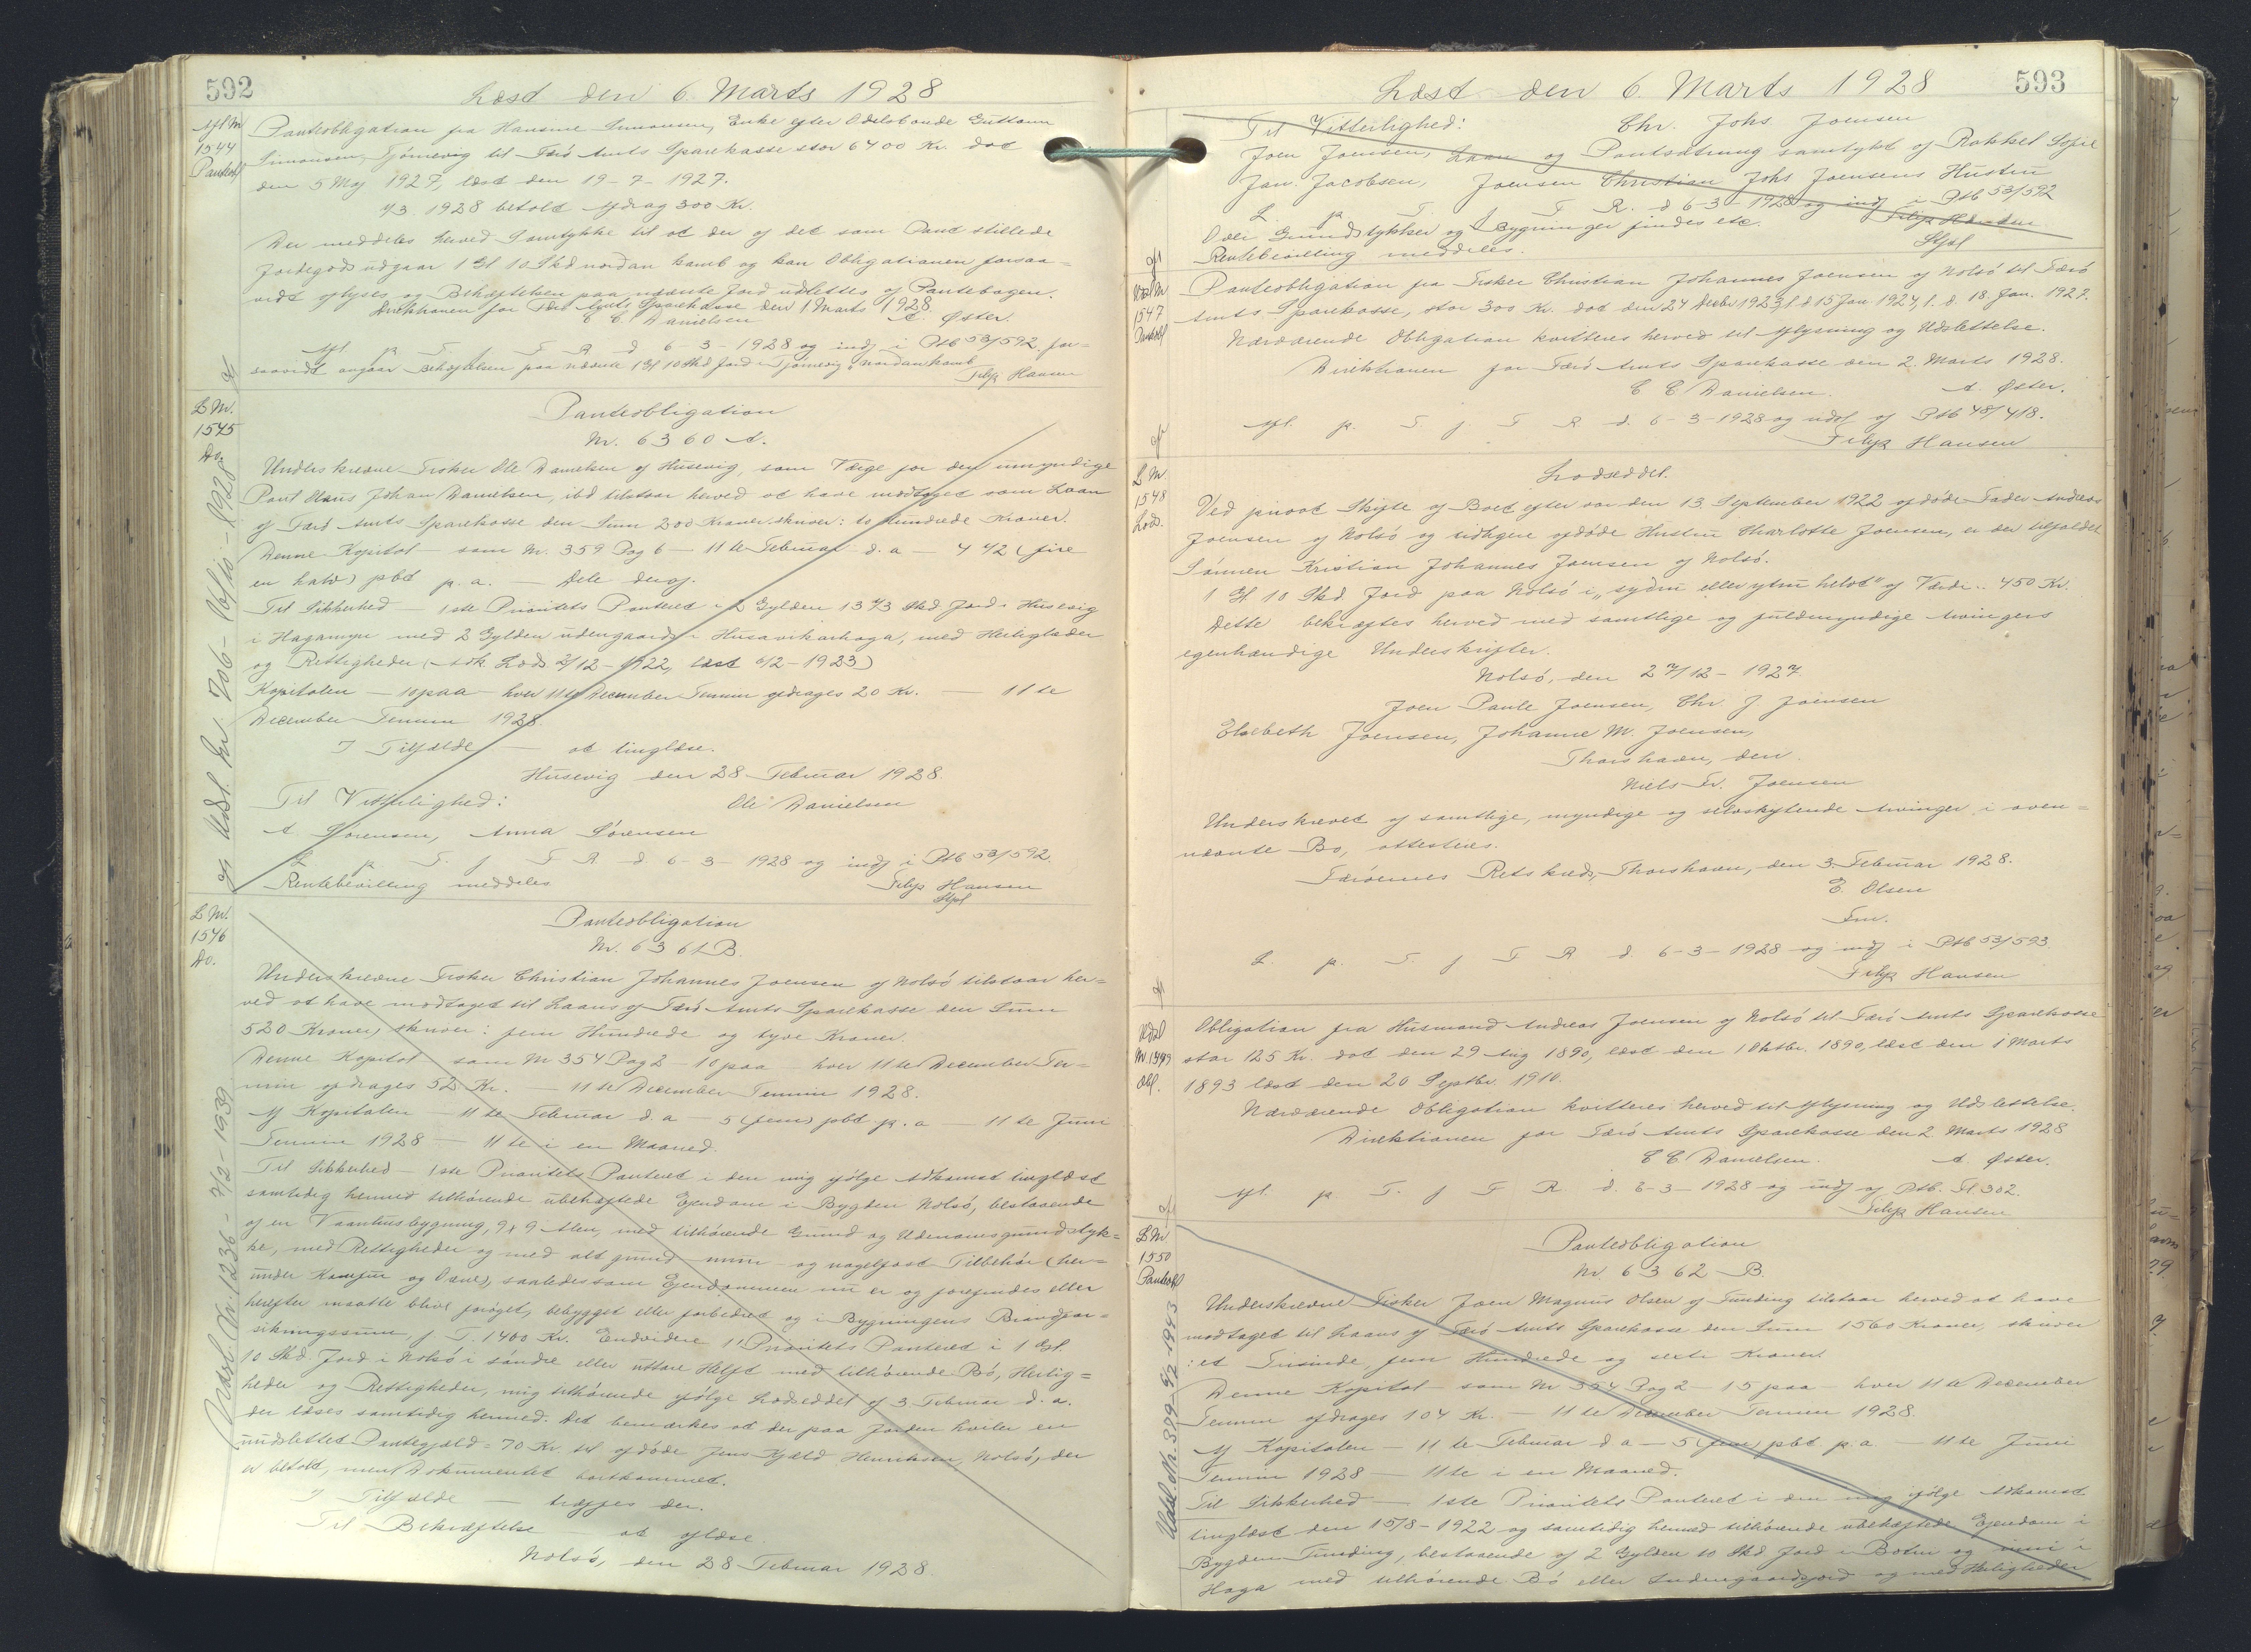 592
Læst den 6. Marts 1928
Afl. Nr.
1544
Panteobl
Panteobligation fra Hansine Simonsen, Enke efter Odelsbonde Guttorm
Simonsen, Tjørnevig til Færø Amts Sparekasse stor 6400 Kr. dat
den 5 Maj 1927, læst den 19-7-1927.
1/3. 1928 betalt Afdrag 300 Kr.
Der meddeles herved Samtykke til at der af det som Pant stillede
Jordegods udgaar 1 Gl 10 Skd nordan kamb og kan Obligationen forsaa=
vidt aflyses og Behæftelsen paa nævnte Jord udslettes af Pantebogen.
Direktionen for Færø Amts Sparekasse den 1 Marts 1928.
C C Danielsen A. Øster.
Afl p T f F R d 6-3-1928 og indf i Ptb 53/592 for=
saavidt angaar Behæftelsen paa nævnte 1 Gl 10 Skd Jord i Tjørnevig nordan kamb
Filip Hansen
L Nr.
1545
Do.
Panteobligation
Nr. 6360 A.
Underskrevne Fisker Ole Danielsen af Husevig, som Værge for den umyndige
Poul Hans Johan Danielsen, ibd tilstaar herved at have modtaget som Laan
af Færø Amts Sparekasse den Sum 200 Kroner skriver: to Hundrede Kroner.
Denne Kapital — som Nr. 359 Pag 6 — 11te Februar d. a — 4 1/2 (fire
en halv) pCt p. a. — dele deraf.
Til Sikkerhed — 1ste Prioritets Panteret i 2 Gylden 13 1/3 Skd. Jord i Husevig
i Hagamyre med 2 Gylden udengaards i Husavikarhaga, med Herligheder
og Rettigheder (Adk Lods 2/12-1922, læst 6/2-1923)
Kapitalen — 10 paa — hver 11te December Termin afdrages 20 Kr. — 11te
December Termin 1928
I Tilfælde — at tinglæse.
Husevig den 28 Februar 1928.
Til Vitterlighed: Ole Danielsen
A Sørensen, Anna Sørensen
L p T. f F R. d. 6-3-1928 og indf i Ptb 53/592.
Rentebevilling meddeles Filip Hansen
Stfnl
L Nr.
1546
Do.
Panteobligation
Nr. 6361 B.
Underskrevne Fisker Christian Johannes Joensen af Nolsø tilstaar her=
ved at have modtaget til Laans af Færø Amts Sparekasse den Sum
520 Kroner, skriver: fem Hundrede og tyve Kroner.
Denne Kapital — som Nr 354 Pag 2 — 10 paa — hver 11te December Ter=
min afdrages 52 Kr. — 11te December Termin 1928.
Af Kapitalen — 11te Februar d. a — 5 (fem) pCt p. a — 11te Juni
Termin 1928 — 11te i en Maaned.
Til Sikkerhed — 1ste Prioritets Panteret i den mig ifølge Adkomst tinglæst
samtidig hermed tilhørende ubehæftede Ejendom i Bygden Nolsø, bestaaende
af en Vaanhusbygning, 9 x 9 Alen, med tilhørende Grund og Udenomsgrundstyk=
ke, med Rettigheder og med alt grund- mur- og nagelfast Tilbehør (her=
under Komfur og Ovne), saaledes som Ejendommen nu er og forefindes eller
herefter maatte blive forøget, bebygget eller forbedret og i Bygningens Brandfor=
sikringssum, f. T. 1400 Kr. Endvidere 1' Prioritets Panteret i 1 Gyl.
10 Skd. Jord i Nolsø i søndre eller uttare Helft med tilhørende Bø, Herlig=
heder og Rettigheder, mig tilhørende ifølge Lodseddel af 3 Februar d. a.
der læses samtidig hermed. Det bemærkes at der paa Jorden hviler en
uudslettet Pantegjæld = 70 Kr. til afdøde Jens Kjeld Henriksen, Nolsø, der
er betalt, men Dokumentet bortkommet.
I Tilfælde — træffes der.
Til Bekræftelse — at aflæse.
Nolsø, den 28 Februar 1928.
Udsl. Nr. 1236 - 7/2 - 1939
593
Læst den 6. Marts 1928
Til Vitterlighed: Chr. Johs Joensen
Joen Joensen, Laan og Pantsætning samtykt af Rakkel Sofie
Jan. Jacobsen, Joensen Christian Johs Joensens Hustru
L. p T. f F R. d 6-3-1928 og indf i Ptb 53/592
Odels Grundstykker og Bygninger findes etc. Filip Hansen
Rentebevilling meddeles. Stfnl
Udsl Nr
1547
Panteobl
Panteobligation fra Fisker Christian Johannes Joensen af Nolsø til Færø
Amts Sparekasse, stor 300 Kr. dat den 24 Decbr 1923, l. d. 15 Jan. 1924, l. d. 18. Jan. 1927.
Nærværende Obligation kvitteres herved til Aflysning og Udslettelse.
Direktionen for Færø Amts Sparekasse den 2. Marts 1928.
C C Danielsen. A. Øster.
Afl. p. T f F R. d. 6-3-1928 og udsl af Ptb 48/418.
Filip Hansen
L Nr
1548
Lods.
Lodseddel.
Ved privat Skifte af Boet efter vor den 13. September 1922 afdøde Fader Andreas
Joensen af Nolsø og tidligere afdøde Hustru Charlotte Joensen, er der tilfaldet
Sønnen Kristian Johannes Joensen af Nolsø.
1 Gl. 10 Skd. Jord paa Nolsø i „syðru eller ytru helvt" af Værdi.. 450 Kr.
Dette bekræftes herved med samtlige og fuldmyndige Arvingers
egenhændige Underskrifter.
Nolsø, den 27/12-1927.
Joen Paule Joensen, Chr. J. Joensen
Elsebeth Joensen, Johanne M. Joensen,
Thorshavn, den.
Niels Fr. Joensen
Underskrevet af samtlige, myndige og selvskiftende Arvinger i oven=
nævnte Bo, attesteres.
Færøernes Retskreds, Thorshavn, den 3. Februar 1928.
E. Olsen
Fm.
L. p. T. f F R d. 6-3-1928 og indf i Ptb 53/593.
Filip Hansen
Udsl
Nr 1549
Obl.
Obligation fra Husmand Andreas Joensen af Nolsø til Færø Amts Sparekasse
stor 125 Kr. dat den 29 Aug 1890, læst den 1 Oktbr. 1890, læst den 1 Marts
1893 læst den 20 Septbr. 1910.
Nærværende Obligation kvitteres herved til Aflysning og Udslettelse.
Direktionen for Færø Amts Sparekasse den 2. Marts 1928
C C Danielsen. A Øster.
Afl. p T. f F R. d. 6-3-1928 og indf af Ptb. Fl 302.
Filip Hansen
L Nr
1550
Panteobl
Panteobligation
Nr. 6362 B.
Underskrevne Fisker Joen Magnus Olsen af Funding tilstaar herved at have
modtaget til Laans af Færø Amts Sparekasse den Sum 1560 Kroner, skriver
: et Tusinde, fem Hundrede og sexti Kroner.
Denne Kapital — som Nr 354 Pag 2 — 15 paa — hver 11te December
Termin afdrages 104 Kr. — 11te December Termin 1928.
Af Kapitalen — 11te Februar d a — 5 (fem) pCt p. a — 11te Juni
Termin 1928 — 11te i en Maaned.
Til Sikkerhed — 1ste Prioritets Panteret i den mig ifølge Adkomst
tinglæst den 15/8-1922 og samtidig hermed tilhørende ubehæftede Ejendom i
Bygden Funding, bestaaende af 2 Gylden 10 Skd Jord i Botni og muni i
Haga med tilhørende Bø eller Indengaardsjord og med Herligheder
Udsl. Nr. 389 6/2-1943